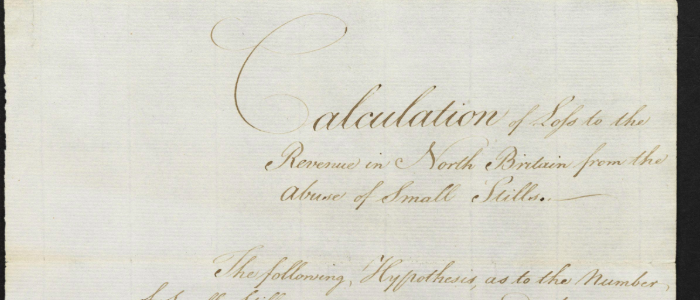 Calculation of Loſs to the
Revenue in North Britain from the
abuse of Small Stills.
The following, Hypothesis, as to the Number,